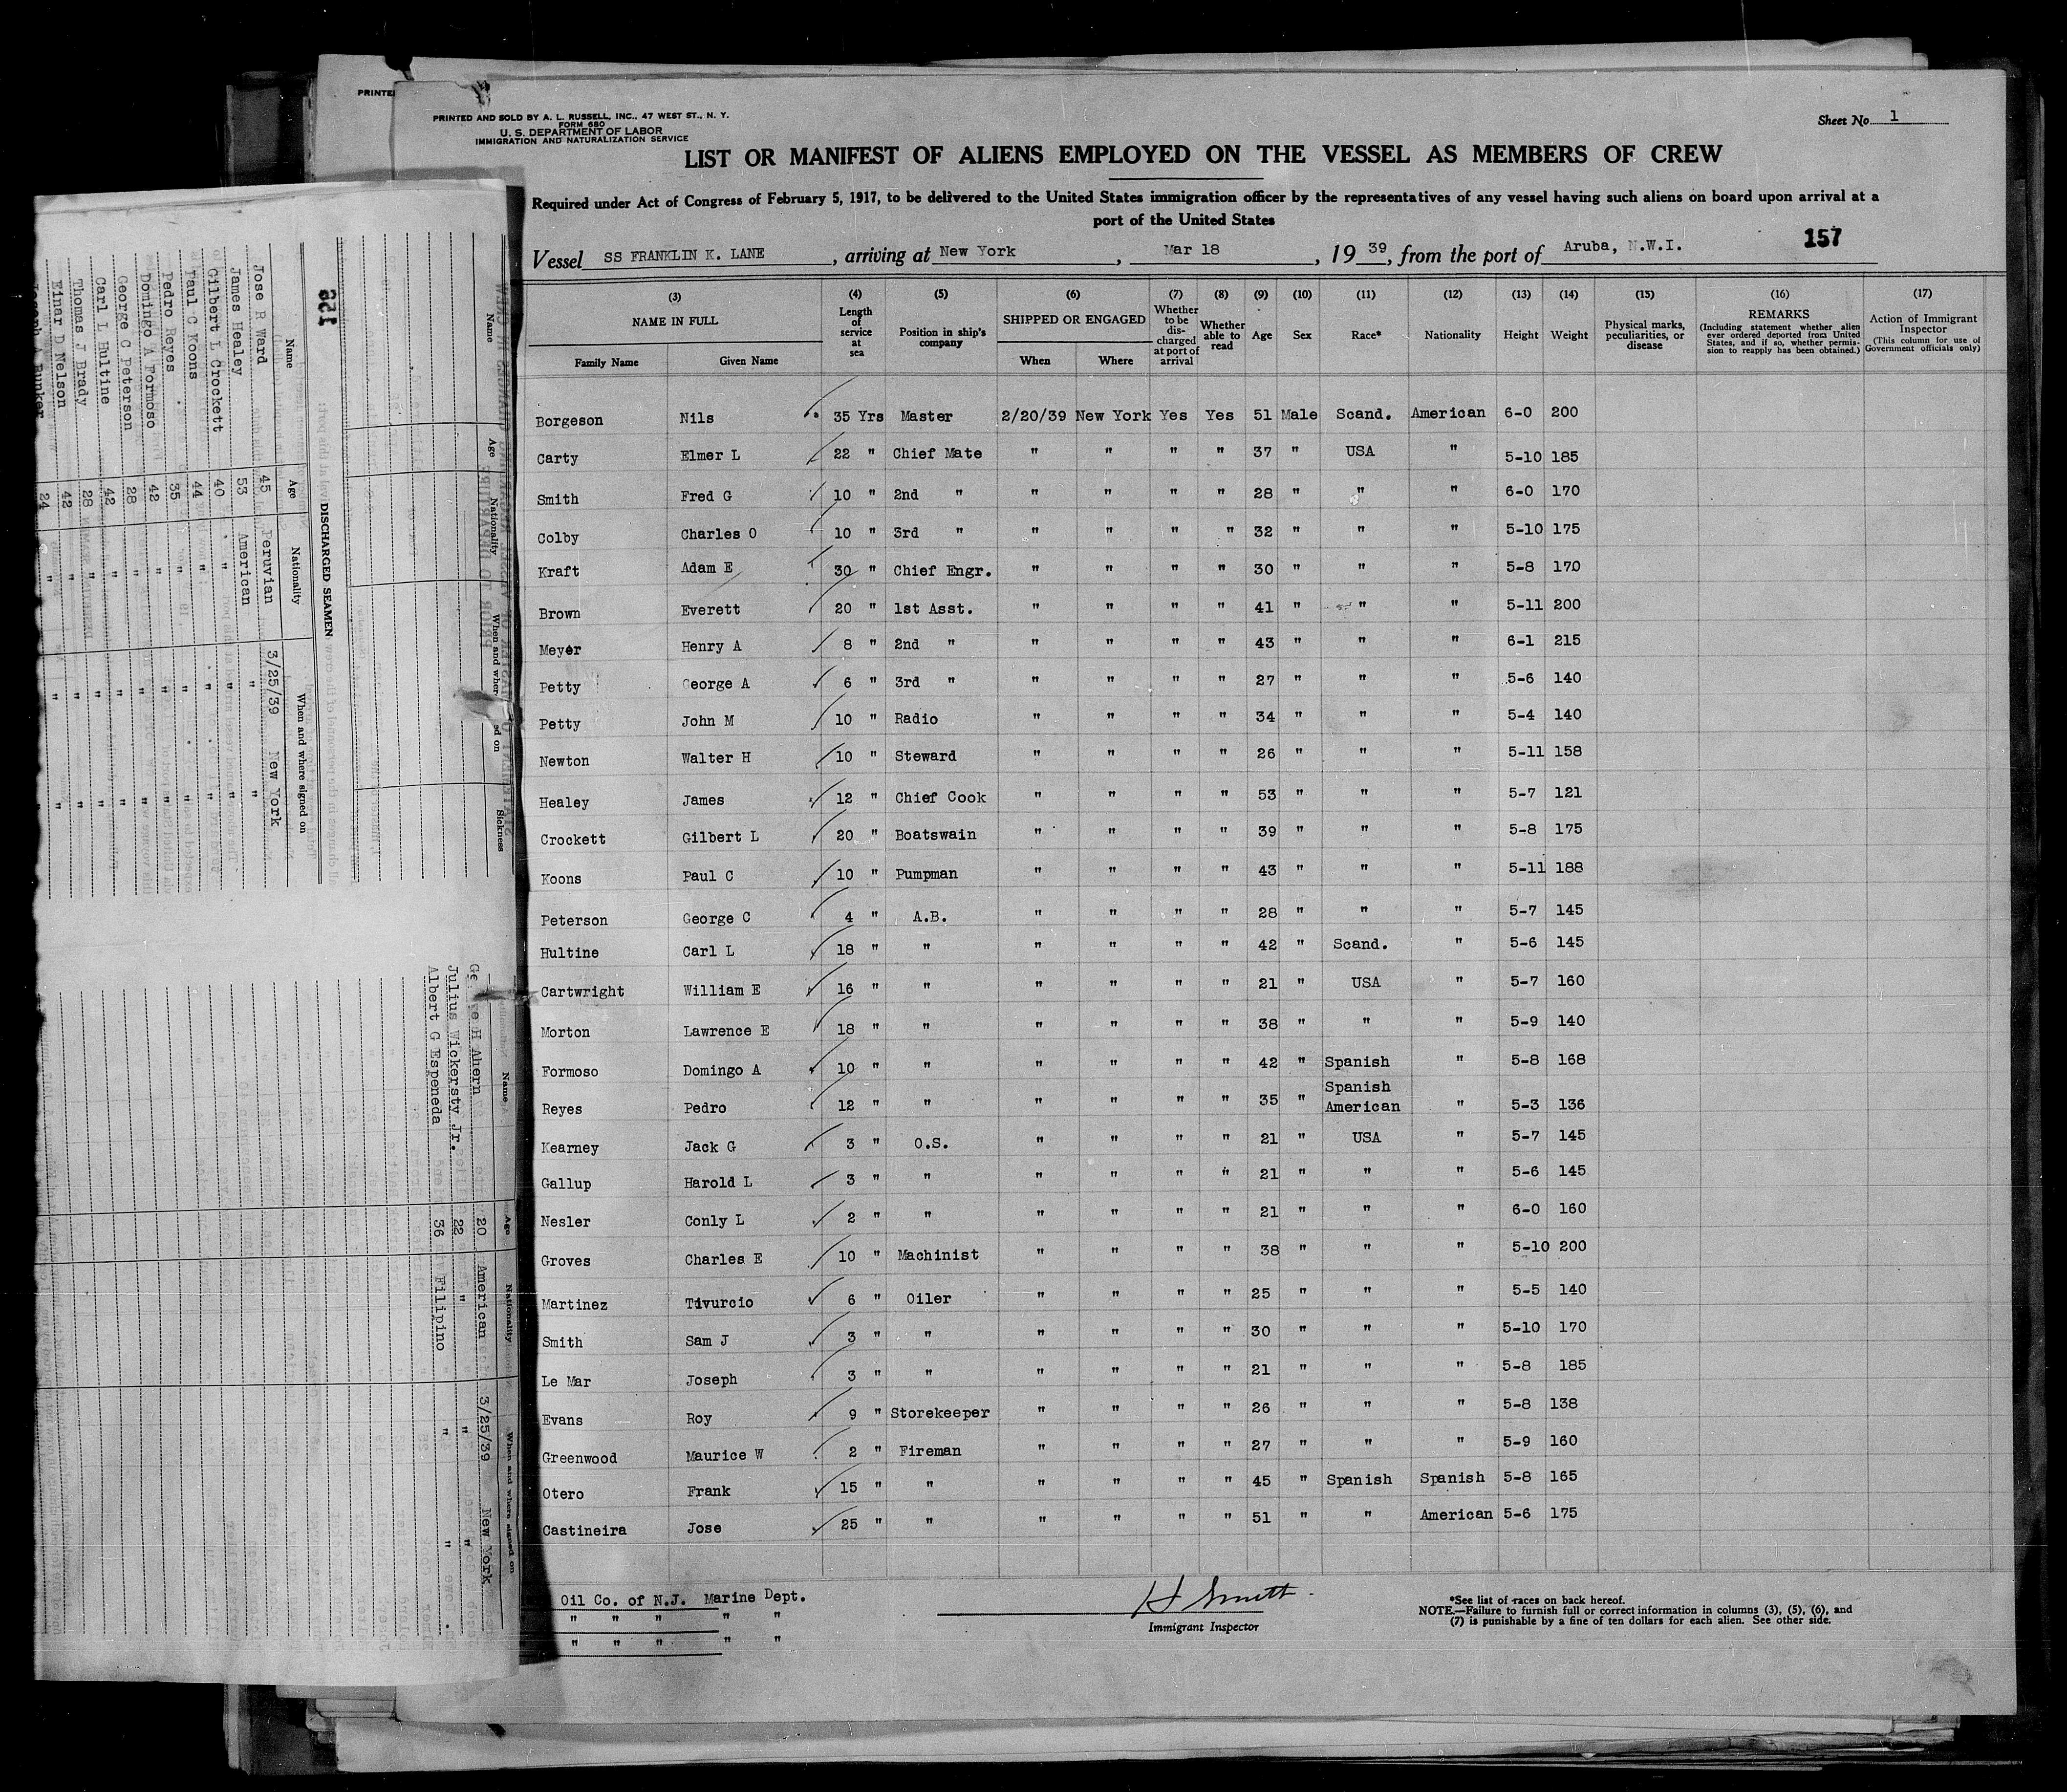 PRINTED AND SOLD BY A. L. RUSSELL, INC., 47 WEST ST., N. Y.
FORM 680
U. S. DEPARTMENT OF LABOR
IMMIGRATION AND NATURALIZATION SERVICE
Sheet No. 1
LIST OR MANIFEST OF ALIENS EMPLOYED ON THE VESSEL AS MEMBERS OF CREW
Required under Act of Congress of February 5, 1917, to be delivered to the United States immigration officer by the representatives of any vessel having such aliens on board upon arrival at a
port of the United States
157
Vessel SS FRANKLIN K. LANE, arriving at New York, Mar 18, 19 39, from the port of Aruba, N.W.I.
(3) (4) (5) (6) (7) (8) (9) (10) (11) (12) (13) (14) (15) (16) (17)
NAME IN FULL Family Name Given Name
Length of service at sea
Position in ship's company
SHIPPED OR ENGAGED When Where
Whether to be discharged at port of arrival
Whether able to read
Age Sex Race* Nationality Height Weight
Physical marks, peculiarities, or disease
REMARKS (Including statement whether alien ever ordered deported from United States, and if so, whether permission to reapply has been obtained.)
Action of Immigrant Inspector (This column for use of Government officials only)
Borgeson Nils 35 Yrs Master 2/20/39 New York Yes Yes 51 Male Scand. American 6-0 200
Carty Elmer L 22 " Chief Mate " " " " 37 " USA " 5-10 185
Smith Fred G 10 " 2nd " " " " " 28 " " " 6-0 170
Colby Charles O 10 " 3rd " " " " " 32 " " " 5-10 175
Kraft Adam E 30 " Chief Engr. " " " " 30 " " " 5-8 170
Brown Everett 20 " 1st Asst. " " " " 41 " " " 5-11 200
Meyer Henry A 8 " 2nd " " " " " 43 " " " 6-1 215
Petty George A 6 " 3rd " " " " " 27 " " " 5-6 140
Petty John M 10 " Radio " " " " 34 " " " 5-4 140
Newton Walter H 10 " Steward " " " " 26 " " " 5-11 158
Healey James 12 " Chief Cook " " " " 53 " " " 5-7 121
Crockett Gilbert L 20 " Boatswain " " " " 39 " " " 5-8 175
Koons Paul C 10 " Pumpman " " " " 43 " " " 5-11 188
Peterson George C 4 " A.B. " " " " 28 " " " 5-7 145
Hultine Carl L 18 " " " " " " 42 " Scand. " 5-6 145
Cartwright William E 16 " " " " " " 21 " USA " 5-7 160
Morton Lawrence E 18 " " " " " " 38 " " " 5-9 140
Formoso Domingo A 10 " " " " " " 42 " Spanish " 5-8 168
Reyes Pedro 12 " " " " " " 35 " Spanish American " 5-3 136
Kearney Jack G 3 " O.S. " " " " 21 " USA " 5-7 145
Gallup Harold L 3 " " " " " " 21 " " " 5-6 145
Nesler Conly L 2 " " " " " " 21 " " " 6-0 160
Groves Charles E 10 " Machinist " " " " 38 " " " 5-10 200
Martinez Tivurcio 6 " Oiler " " " " 25 " " " 5-5 140
Smith Sam J 3 " " " " " " 30 " " " 5-10 170
Le Mar Joseph 3 " " " " " " 21 " " " 5-8 185
Evans Roy 9 " Storekeeper " " " " 26 " " " 5-8 138
Greenwood Maurice W 2 " Fireman " " " " 27 " " " 5-9 160
Otero Frank 15 " " " " " " 45 " Spanish Spanish 5-8 165
Castineira Jose 25 " " " " " " 51 " " American 5-6 175
Oil Co. of N.J. Marine Dept.
" " " " "
" " " " "
H Smith
Immigrant Inspector
*See list of races on back hereof.
NOTE.—Failure to furnish full or correct information in columns (3), (5), (6), and
(7) is punishable by a fine of ten dollars for each alien. See other side.
PRINTE
Name Age Nationality When and where signed on Sickness
158
DISCHARGED SEAMEN
Name Age Nationality When and where signed on
Jose R Ward 45 Peruvian 3/25/39 New York
James Healey 53 American " "
Gilbert L Crockett 40 " " "
Paul C Koons 44 " " "
Pedro Reyes 35 " " "
Domingo A Formoso 42 " " "
George C Peterson 28 " " "
Carl L Hultine 42 " " "
Thomas J Brady 28 " " "
Einar D Nelson 42 " " "
Joseph A Bunker 24 " " "
Name Age Nationality When and where signed on
H Ahern 20 American 3/25/39 New York
Julius Wickersty Jr. 22 " " "
Albert G Espeneda 36 Filipino " "